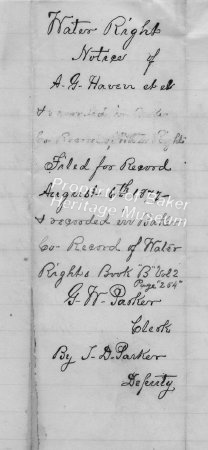 Water Right
Notice of
A. G. Haven et al
& recorded in Baker
Co Record of Water Rights
Filed for Record
August 6th 1877
& recorded in Baker
Co Record of Water
Rights Book "B" Vol 2
Page "264"
G. W. Parker
Clerk
By I. D. Parker
Deputy
Property of Baker
Heritage Museum